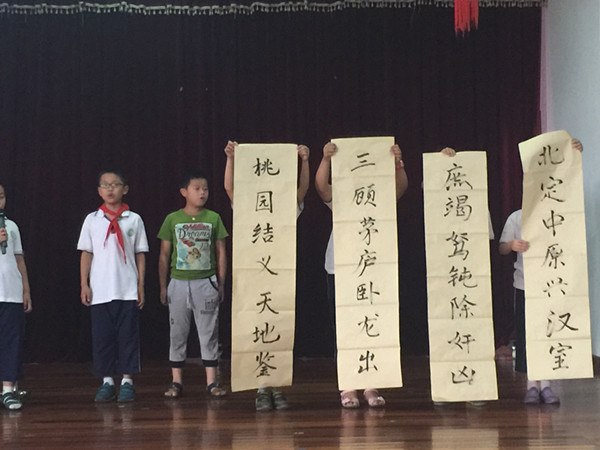 桃园结义天地鉴
三顾茅庐卧龙出
庶竭驽钝除奸凶
北定中原兴汉室